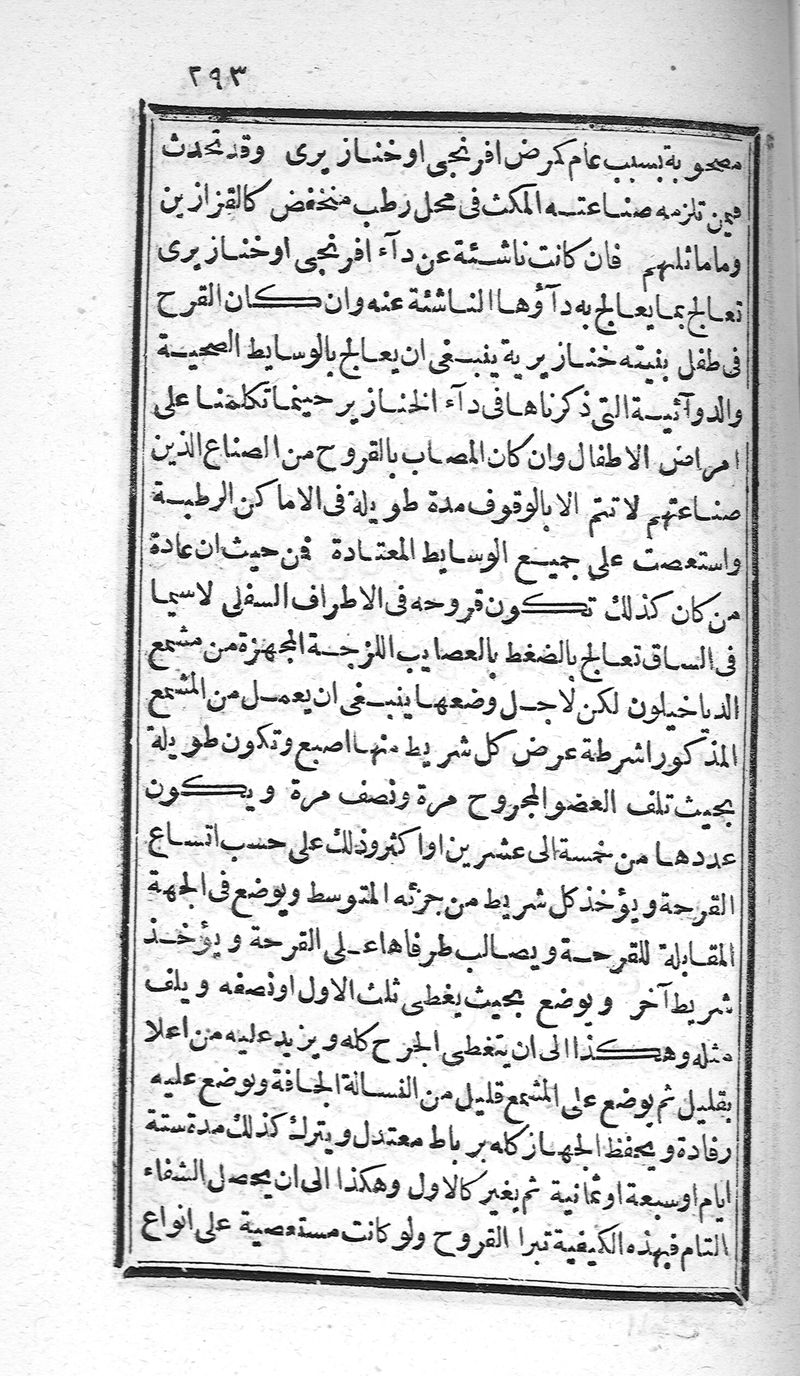 ٢٩٣
مصحوبة بسبب عام كمرض افرنجى او خنازيرى وقد تحدث
فيمن تلزمه صناعته المكث فى محل رطب منخفض كالقزازين
وماماثلهم فان كانت ناشئة عن دآء افرنجى او خنازيرى
تعالج بما يعالج به دآؤها الناشئة عنه وان كان القرح
فى طفل بنيته خنازيرية ينبغى ان يعالج بالوسايط الصحية
والدوآئية التى ذكرناها فى دآء الخنازير حينما تكلمنا على
امراض الاطفال وان كان المصاب بالقروح من الصناع الذين
صناعتهم لا تتم الا بالوقوف مدة طويلة فى الاماكن الرطبة
واستعصت على جميع الوسايط المعتادة فمن حيث ان عادة
من كان كذلك تكون قروحه فى الاطراف السفلى لاسيما
فى الساق تعالج بالضغط بالعصايب اللزجة المجهزة من مشمع
الدياخيلون لكن لاجل وضعها ينبغى ان يعمل من المشمع
المذكور اشرطة عرض كل شريط منها اصبع وتكون طويلة
بحيث تلف العضو المجروح مرة ونصف مرة ويكون
عددها من خمسة الى عشرين او اكثر وذلك على حسب اتساع
القرحة ويؤخذ كل شريط من جزئه المتوسط ويوضع فى الجهة
المقابلة للقرحة ويصالب طرفاها على القرحة ويؤخذ
شريط آخر ويوضع بحيث يغطى ثلث الاول او نصفه ويلف
مثله وهكذا الى ان يتغطى الجرح كله ويزيد عليه من اعلا
بقليل ثم يوضع على المشمع قليل من الفسالة الجافة ويوضع عليه
رفادة ويحفظ الجهاز كله برباط معتدل ويترك كذلك مدة ستة
ايام او سبعة او ثمانية ثم يغير كالاول وهكذا الى ان يحصل الشفاء
التام فبهذه الكيفية تبرا القروح ولو كانت مستعصية على انواع